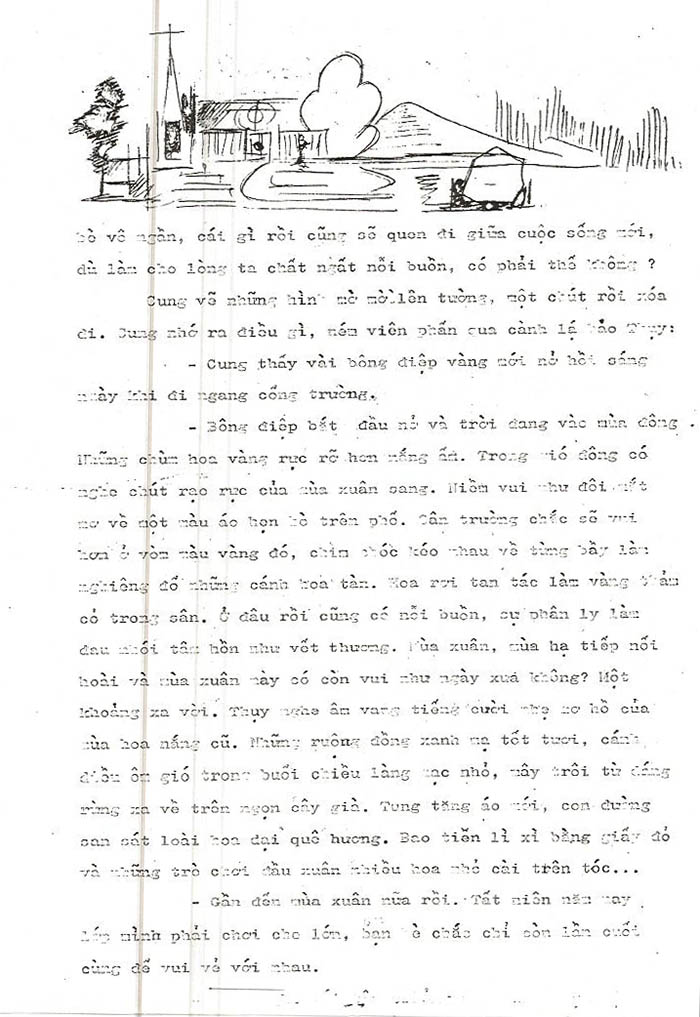 bè vô ngần, cái gì rồi cũng sẽ quen đi giữa cuộc sống mới,
dù làm cho lòng ta chất ngất nỗi buồn, có phải thế không ?
Cung vẽ những hình mờ mờ lên tường, một chút rồi xóa
đi. Cung nhớ ra điều gì, ném viên phấn qua cành lá bảo Thụy:
- Cung thấy vài bông điệp vàng mới nở hồi sáng
ngày khi đi ngang cổng trường.
- Bông điệp bắt đầu nở và trời đang vào mùa đông .
Những chùm hoa vàng rực rỡ hơn nắng ấm. Trong gió đông có
nghe chút rạo rực của mùa xuân sang. Niềm vui như đôi mắt
mơ về một màu áo hẹn hò trên phố. Sân trường chắc sẽ vui
hơn ở vòm màu vàng đó, chim chóc kéo nhau về từng bầy làm
nghiêng đổ những cánh hoa tàn. Hoa rơi tan tác làm vàng thảm
cỏ trong sân. Ở đâu rồi cũng có nỗi buồn, sự phân ly làm
đau nhói tâm hồn như vết thương. Mùa xuân, mùa hạ tiếp nối
hoài và mùa xuân này có còn vui như ngày xưa không? Một
khoảng xa vời. Thụy nghe âm vang tiếng cười nhẹ mơ hồ của
mùa hoa nắng cũ. Những ruộng đồng xanh mạ tốt tươi, cánh
diều ôm gió trong buổi chiều làng mạc nhỏ, mây trôi từ dáng
rừng xa về trên ngọn cây già. Tung tăng áo mới, con đường
san sát loài hoa dại quê hương. Bao tiền lì xì bằng giấy đỏ
và những trò chơi đầu xuân nhiều hoa nhỏ cài trên tóc...
- Gần đến mùa xuân nữa rồi. Tất niên năm nay
lớp mình phải chơi cho lớn, bạn bè chắc chỉ còn lần cuối
cùng để vui vẻ với nhau.